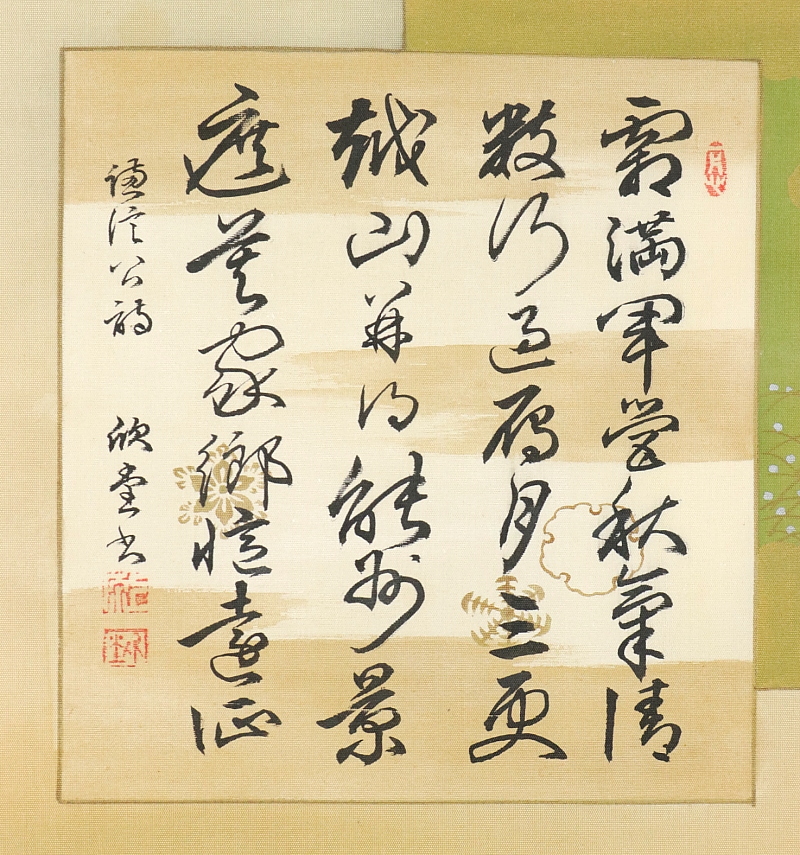 霜満軍営秋氣清
数行過雁月三更
越山并得能州景
遮莫家郷憶遠征
謙信公詩 欣堂書